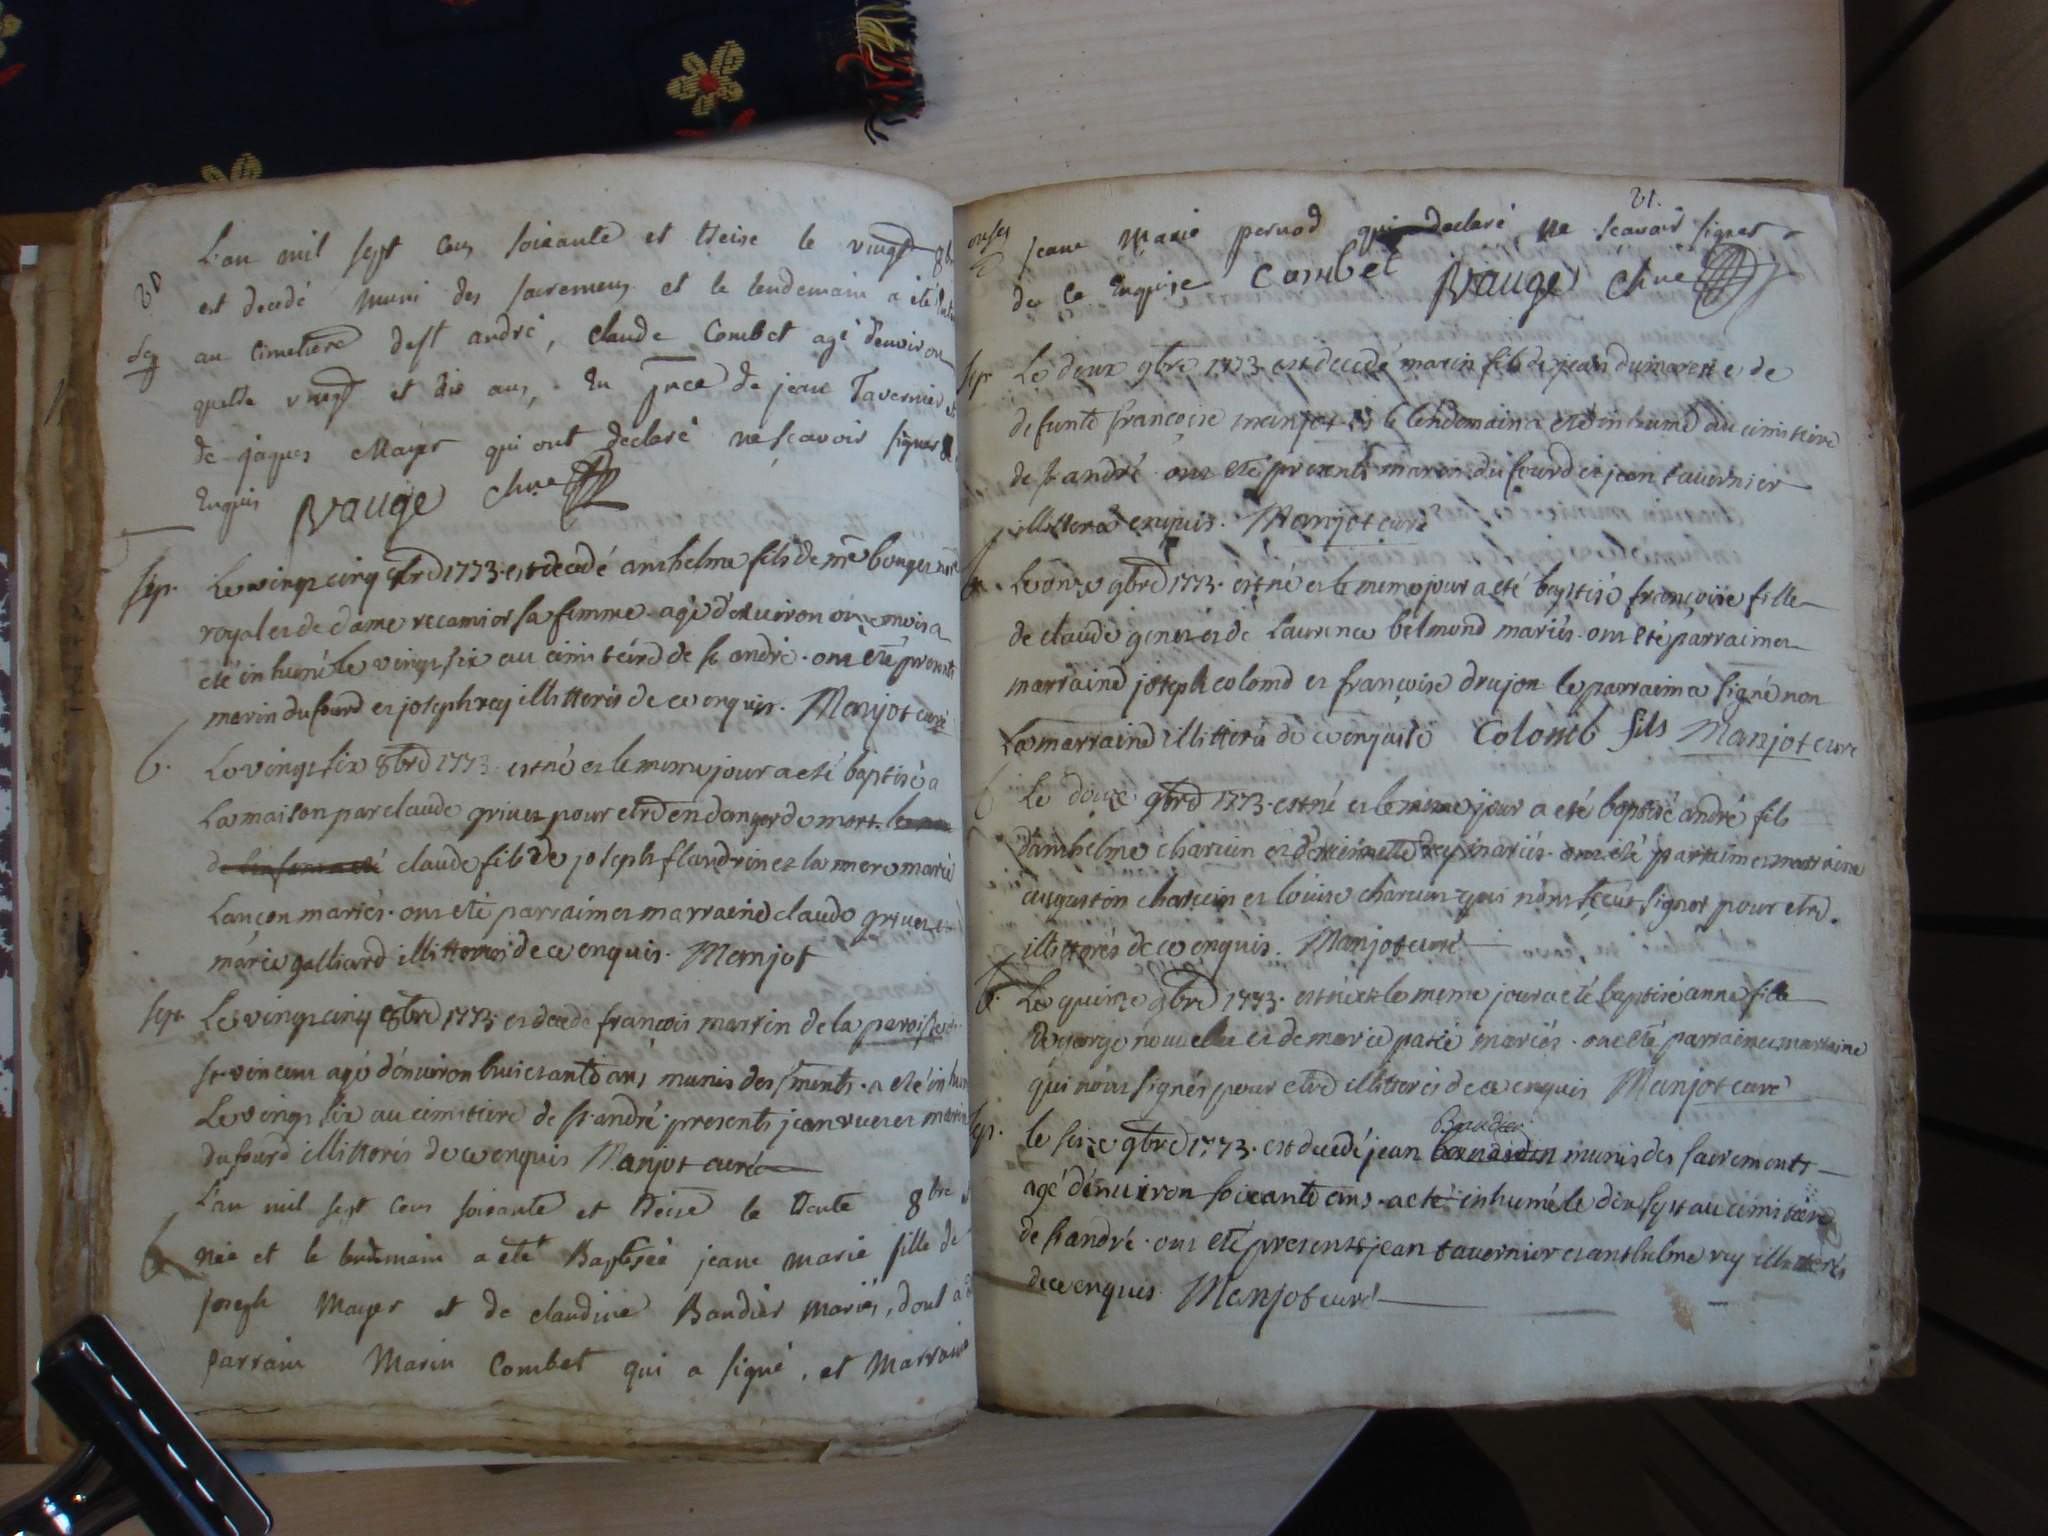 L'an mil sept cens soixante et treise le vingt 8bre
est decedé muni des sacremens et le lendemain a été
au cimetiere de st andré, claude Combet agé d'environ
quatre vingt et dix ans, en pnce de jean Tavernier et
de jaques Mayer qui ont declaré ne sçavoir signer de
Enquis Vauge
sep. Le vingt cinq 8bre 1773. est decedé anthelme fils de me bouger
royal et de dame recamier sa femme. agé d'environ onze mois a
eté inhumé le vingt six au cimitéire de st andré. ont eté presents
marin dufourd et joseph rey illitterés de ce enquis. Manjot curé
b. Le vingt six 8bre 1773. est né et le meme jour a eté baptisé a
La maison par claude grivet pour etre en danger de mort.
claude fils de joseph flandrin et la mere marie
Lançon mariés. ont eté parrain et marraine claude grivet et
marie galliard illitterés de ce enquis. Manjot
sep. Le vingt cinq 8bre 1773. est decedé francois martin de la paroisse
st vincent agé d'environ huictante ans munis des sments. a eté inhumé
Le vingt six au cimitiere de st. andré. presents jean et marin
dufourd illitterés de ce enquis Manjot curé
L'an mil sept cens soixante et treise le trente 8bre est
b née et le lendemain a eté Baptisée jeane marie fille de
joseph Mayer et de claudine Baudier mariés, dont a été
parrain Marin Combet qui a signé, et Marraine
21.
jeane Marie pernod qui declaré ne sçavoir signer
de ce Enquise Combet Vauge
sep. Le deux 9bre 1773. est decedé marin fils de jean dumarest e de
defunte françoise manjot et le lendemain a eté inhumé au cimitiere
de st andré. ont eté presents marin dufourd et jean tavernier
illitteres enquis. Manjot curé
b. Le onze 9bre 1773. est né et le meme jour a eté baptisé françoise fille
de claude genet et de Laurence belmond mariés. ont eté parrain et
marraine joseph colomb et françoise drujon le parrain a signé non
La marraine illitteré de ce enquise Colomb fils Manjot curé
b Le douze 9bre 1773. est né et le meme jour a eté baptisé andré fils
d'anthelme charcun et d'etiennette rey mariés. ont eté parrain et marraine
augustin charcun et louise charcun qui n'ont sçeut signer pour etre
illitterés de ce enquis. Manjot curé
b. Le quinze 9bre 1773. est né et le meme jour a eté baptisé anne fille
de george nouvellet et de marie patié mariés. ont eté parrain et marraine
qui n'ont signés pour etre illitterés de ce enquis Manjot curé
Baudier
sep. le seize 9bre 1773. est decedé jean munis des sacrements
agé d'environ soixante ans. a eté inhumé le dix sept au cimitiere
de st andré. ont eté presents jean tavernier et anthelme rey illitterés
de ce enquis Manjot curé